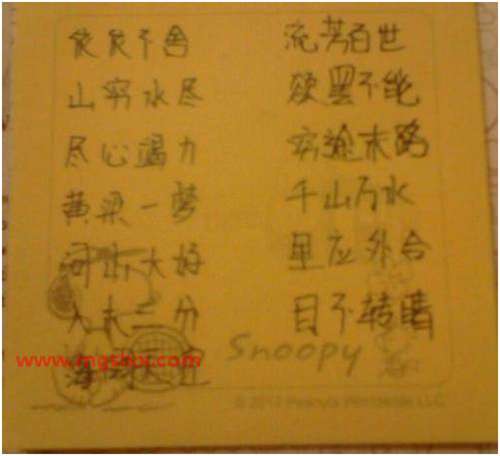 依依不舍 流芳百世
山穷水尽 欲罢不能
尽心竭力 穷途末路
黄梁一梦 千山万水
河山大好 里应外合
入木三分 目不转睛
Snoopy
www.mgshxx.com
© 2012 Peanuts Worldwide LLC